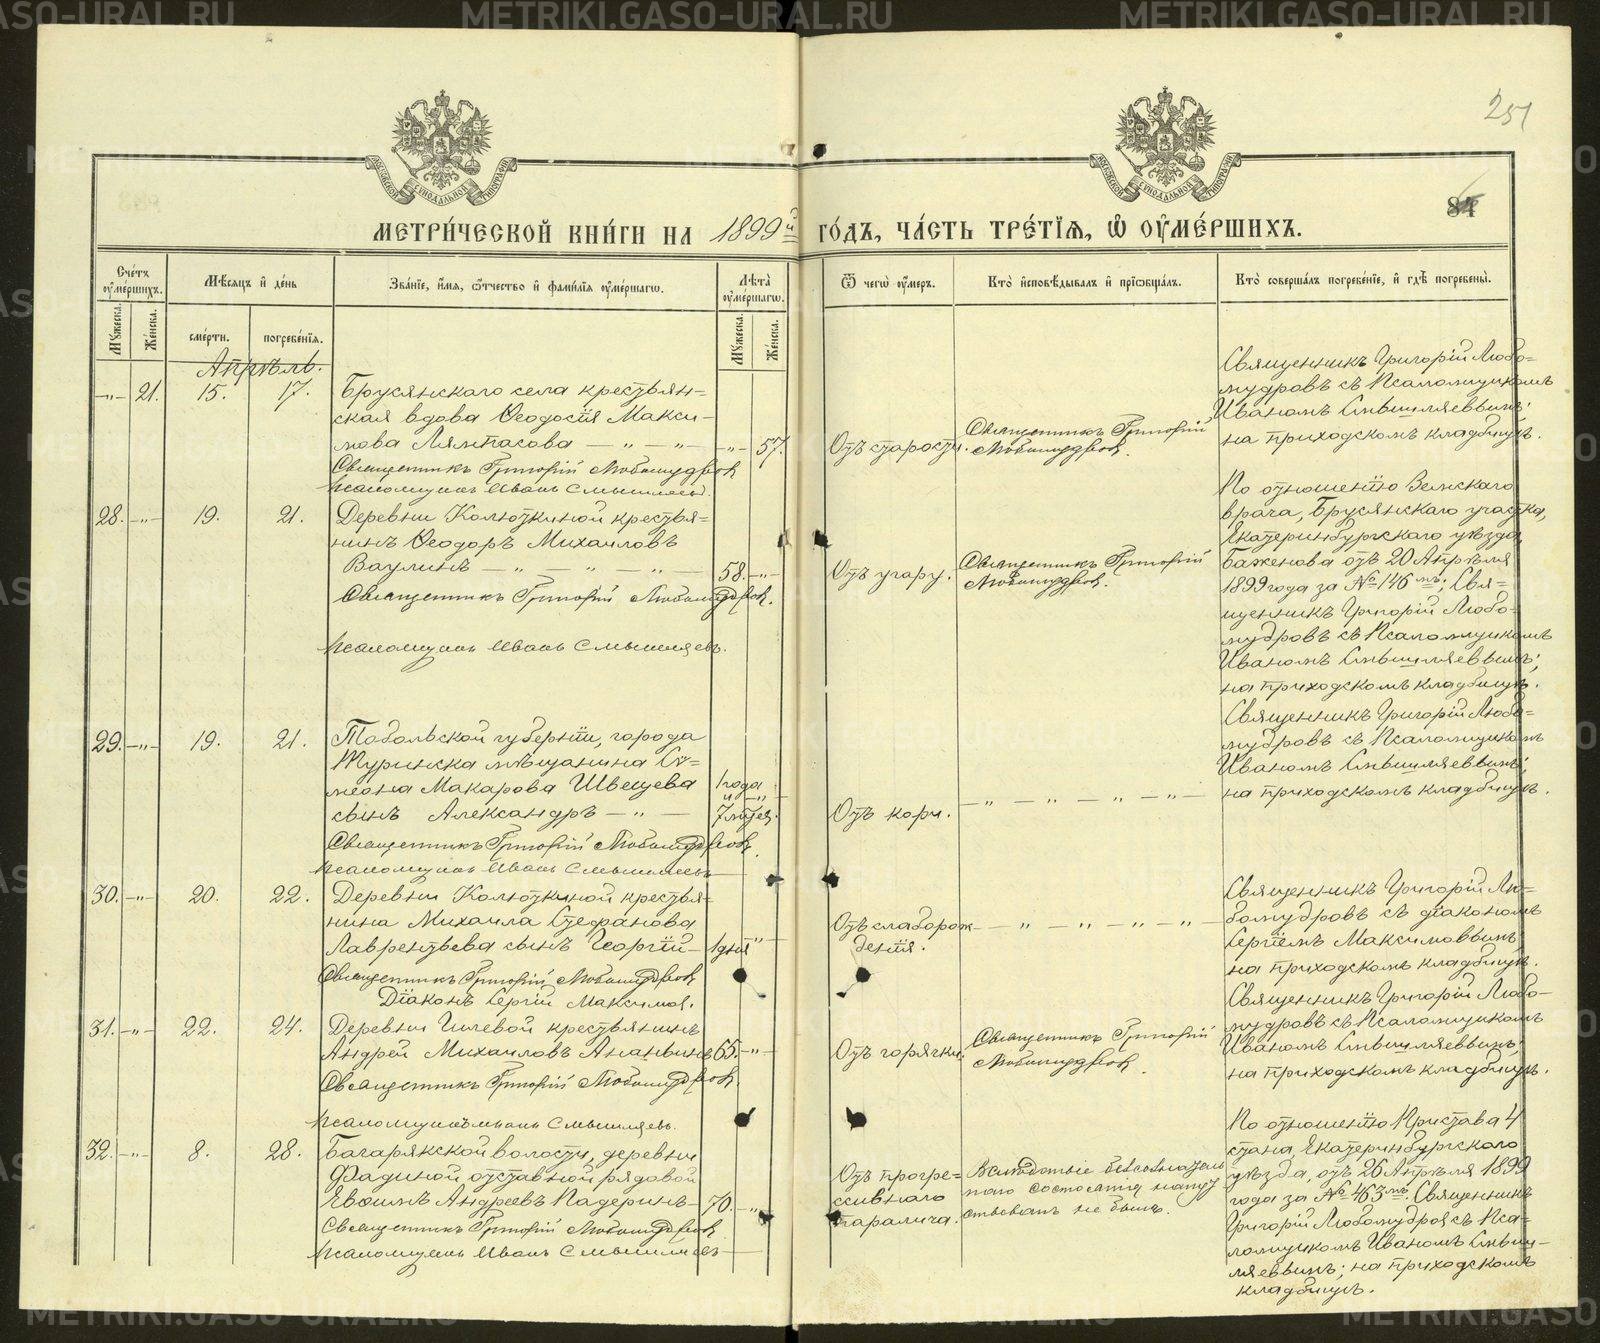 METRIKI.GASO-URAL.RU
251
84
МЕТРИ́ЧЕСКОЙ КНИ́ГИ НА 1899й ГО́ДЪ, ЧА́СТЬ ТРЕ́ТІѦ, Ѡ҆ ОУ҆МЕ́РШИХЪ.
Счетъ оумершихъ.
Мужеска.
Женска.
Мѣсяцъ и день
смерти.
погребенія.
Званіе, имя, отчество и фамилія оумершаго.
Лѣта оумершаго.
Мужеска.
Женска.
Ѿ чего оумеръ.
Кто исповѣдывалъ и пріобщалъ.
Кто совершалъ погребеніе, и гдѣ погребены.
Апрѣль.
-"- 21. 15. 17.
Брусянскаго села крестьян=
ская вдова Ѳеодосія Макси-
мова Ляптасова — " — " — -"- 57.
Священникъ Григорій Любомудровъ
Псаломщикъ Иванъ Смышляевъ.
Отъ старости.
Священникъ Григорій
Любомудровъ.
Священникъ Григорій Любо=
мудровъ съ Псаломщикомъ
Иваномъ Смышляевымъ;
на приходскомъ кладбищѣ.
28. -"- 19. 21.
Деревни Колюткиной крестья=
нинъ Ѳеодоръ Михаиловъ
Ваулинъ — " — " — " 58. -"-
Священникъ Григорій Любомудровъ.
Псаломщикъ Иванъ Смышляевъ.
Отъ угару.
Священникъ Григорій
Любомудровъ.
По отношенію Земскаго
врача, Брусянскаго участка,
Екатеринбургскаго уѣзда,
Баженова отъ 20 Апрѣля
1899 года за № 146мъ; Свя=
щенникъ Григорій Любо=
мудровъ съ Псаломщикомъ
Иваномъ Смышляевымъ;
на приходскомъ кладбищѣ.
29. -"- 19. 21.
Тобольской губерніи, города
Туринска мѣщанина Си=
меона Макарова Швецева
сынъ Александръ — " —
1 года
и
7 мѣсяц.
Священникъ Григорій Любомудровъ.
Псаломщикъ Иванъ Смышляевъ
Отъ кори.
— " — " — " — " —
Священникъ Григорій Любо=
мудровъ съ Псаломщикомъ
Иваномъ Смышляевымъ;
на приходскомъ кладбищѣ.
30. -"- 20. 22.
Деревни Колюткиной крестья=
нина Михаила Стефанова
Лаврентьева сынъ Георгій — 1 дня -"-
Священникъ Григорій Любомудровъ
Діаконъ Сергій Максимовъ.
Отъ слаборож-
денія.
— " — " — " — " —
Священникъ Григорій Лю=
бомудровъ съ діакономъ
Сергіемъ Максимовымъ;
на приходскомъ кладбищѣ.
31. -"- 22. 24.
Деревни Гилевой крестьянинъ
Андрей Михаиловъ Ананьинъ 65. -"-
Священникъ Григорій Любомудровъ.
Псаломщикъ Иванъ Смышляевъ.
Отъ горячки.
Священникъ Григорій
Любомудровъ.
Священникъ Григорій Любо-
мудровъ съ Псаломщикомъ
Иваномъ Смышляевымъ;
на приходскомъ кладбищѣ.
32. -"- 8. 28.
Багарякской волости, деревни
Фадиной отставной рядовой
Евфимъ Андреевъ Падеринъ — 70. -"-
Священникъ Григорій Любомудровъ
Псаломщикъ Иванъ Смышляевъ
Отъ прогре=
ссивнаго
паралича.
Вслѣдствіе безсознатель
наго состоянія напут
ствованъ не былъ.
По отношенію Пристава 4
стана, Екатеринбургскаго
уѣзда, отъ 26 Апрѣля 1899
года за № 463мъ. Священникъ
Григорій Любомудровъ съ Пса-
ломщикомъ Иваномъ Смыш-
ляевымъ; на приходскомъ
кладбищѣ.